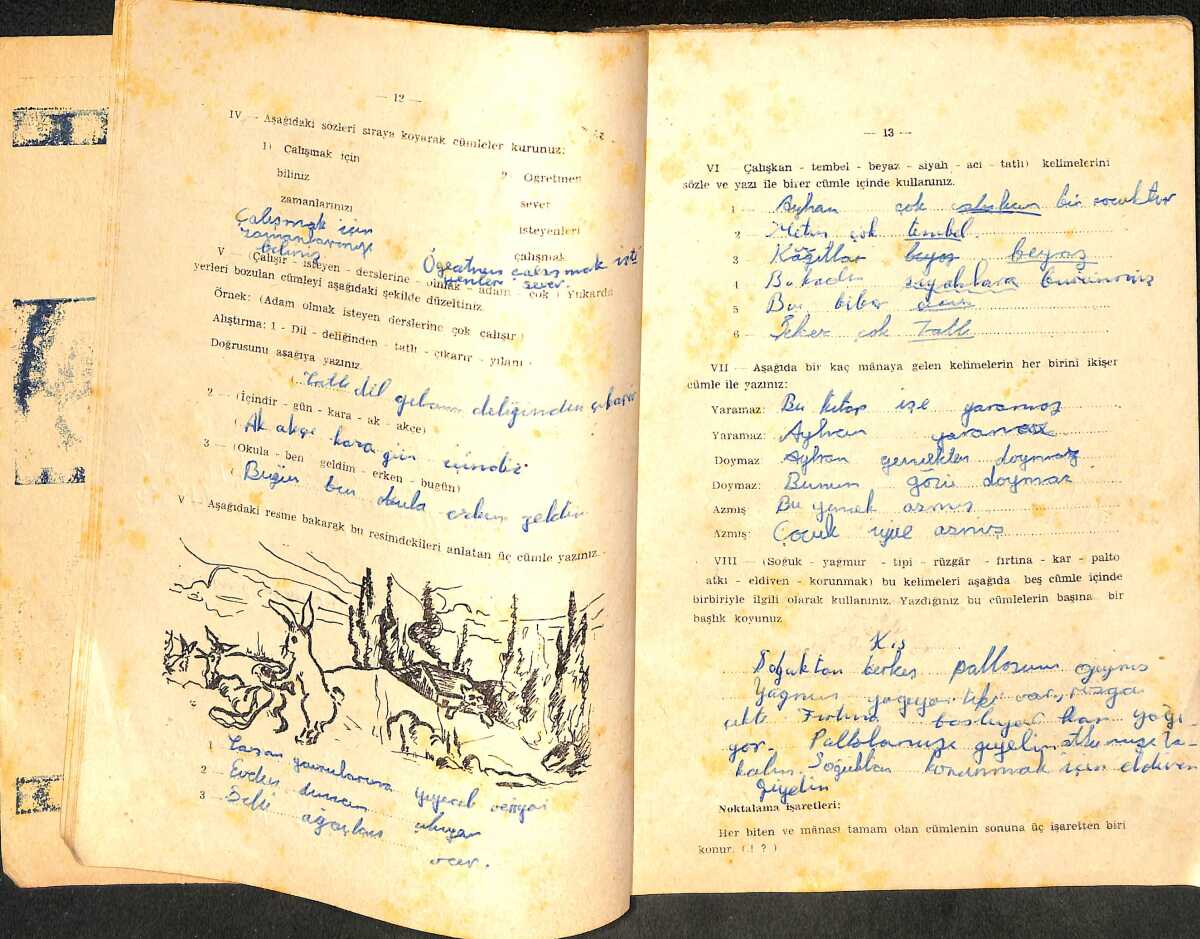 — 12 —
IV — Aşağıdaki sözleri sıraya koyarak cümleler kurunuz:
1) Çalışmak için
biliniz
zamanlarınızı
2 Öğretmen
sever
isteyenleri
çalışmak
Çalışmak için
zamanlarınızı
biliniz
Ögretmen çalışmak iste
yenleri sever.
V — (Çalışır - isteyen - derslerine - olmak - adam - çok) Yukarda
yerleri bozulan cümleyi aşağıdaki şekilde düzeltiniz.
Örnek: (Adam olmak isteyen derslerine çok çalışır)
Alıştırma: 1 - Dil - deliğinden - tatlı - çıkarır - yılanı -
Doğrusunu aşağıya yazınız.
Tatlı dil deliğinden çıkarır
2 — (İçindir - gün - kara - ak - akçe)
( Ak akçe kara gün içindir
3 — (Okula - ben - geldim - erken - bugün)
( Bugün ben okula erken geldim
V — Aşağıdaki resme bakarak bu resimdekileri anlatan üç cümle yazınız.
1 yavrularına yiyecek
2 — Evden duman çıkıyor
3 — ağaçları
— 13 —
VI — Çalışkan - tembel - beyaz - siyah - acı - tatlı) kelimelerini
sözle ve yazı ile birer cümle içinde kullanınız.
1 — Ayhan çok bir çocuktur
2 Metin çok tembel.
3 Kağıtlar beyaz beyaz
4 siyahlara
5 Bu biber
6 Şeker çok Tatlı
VII — Aşağıda bir kaç mânaya gelen kelimelerin her birini ikişer
cümle ile yazınız:
Yaramaz: Bu kitap işe yaramaz
Yaramaz: Ayhan yaramaz
Doymaz Ayhan yemekten doymaz
Doymaz: Bunun gözü doymaz
Azmış Bu yemek azmış
Azmış: Çocuk azmış
VIII — (Soğuk - yağmur - tipi - rüzgâr - fırtına - kar - palto
atkı - eldiven - korunmak) bu kelimeleri aşağıda beş cümle içinde
birbiriyle ilgili olarak kullanınız. Yazdığınız bu cümlelerin başına bir
başlık koyunuz
Kış
Soğuktan herkes paltosunu giymiş
Yağmur yağıyor var, rüzga
çıktı Fırtına başlıyor kar yağı
yor. giyelim
Soğuktan korunmak için eldiven
giyelim
Noktalama işaretleri:
Her biten ve mânası tamam olan cümlenin sonuna üç işaretten biri
konur. (. ! ? )